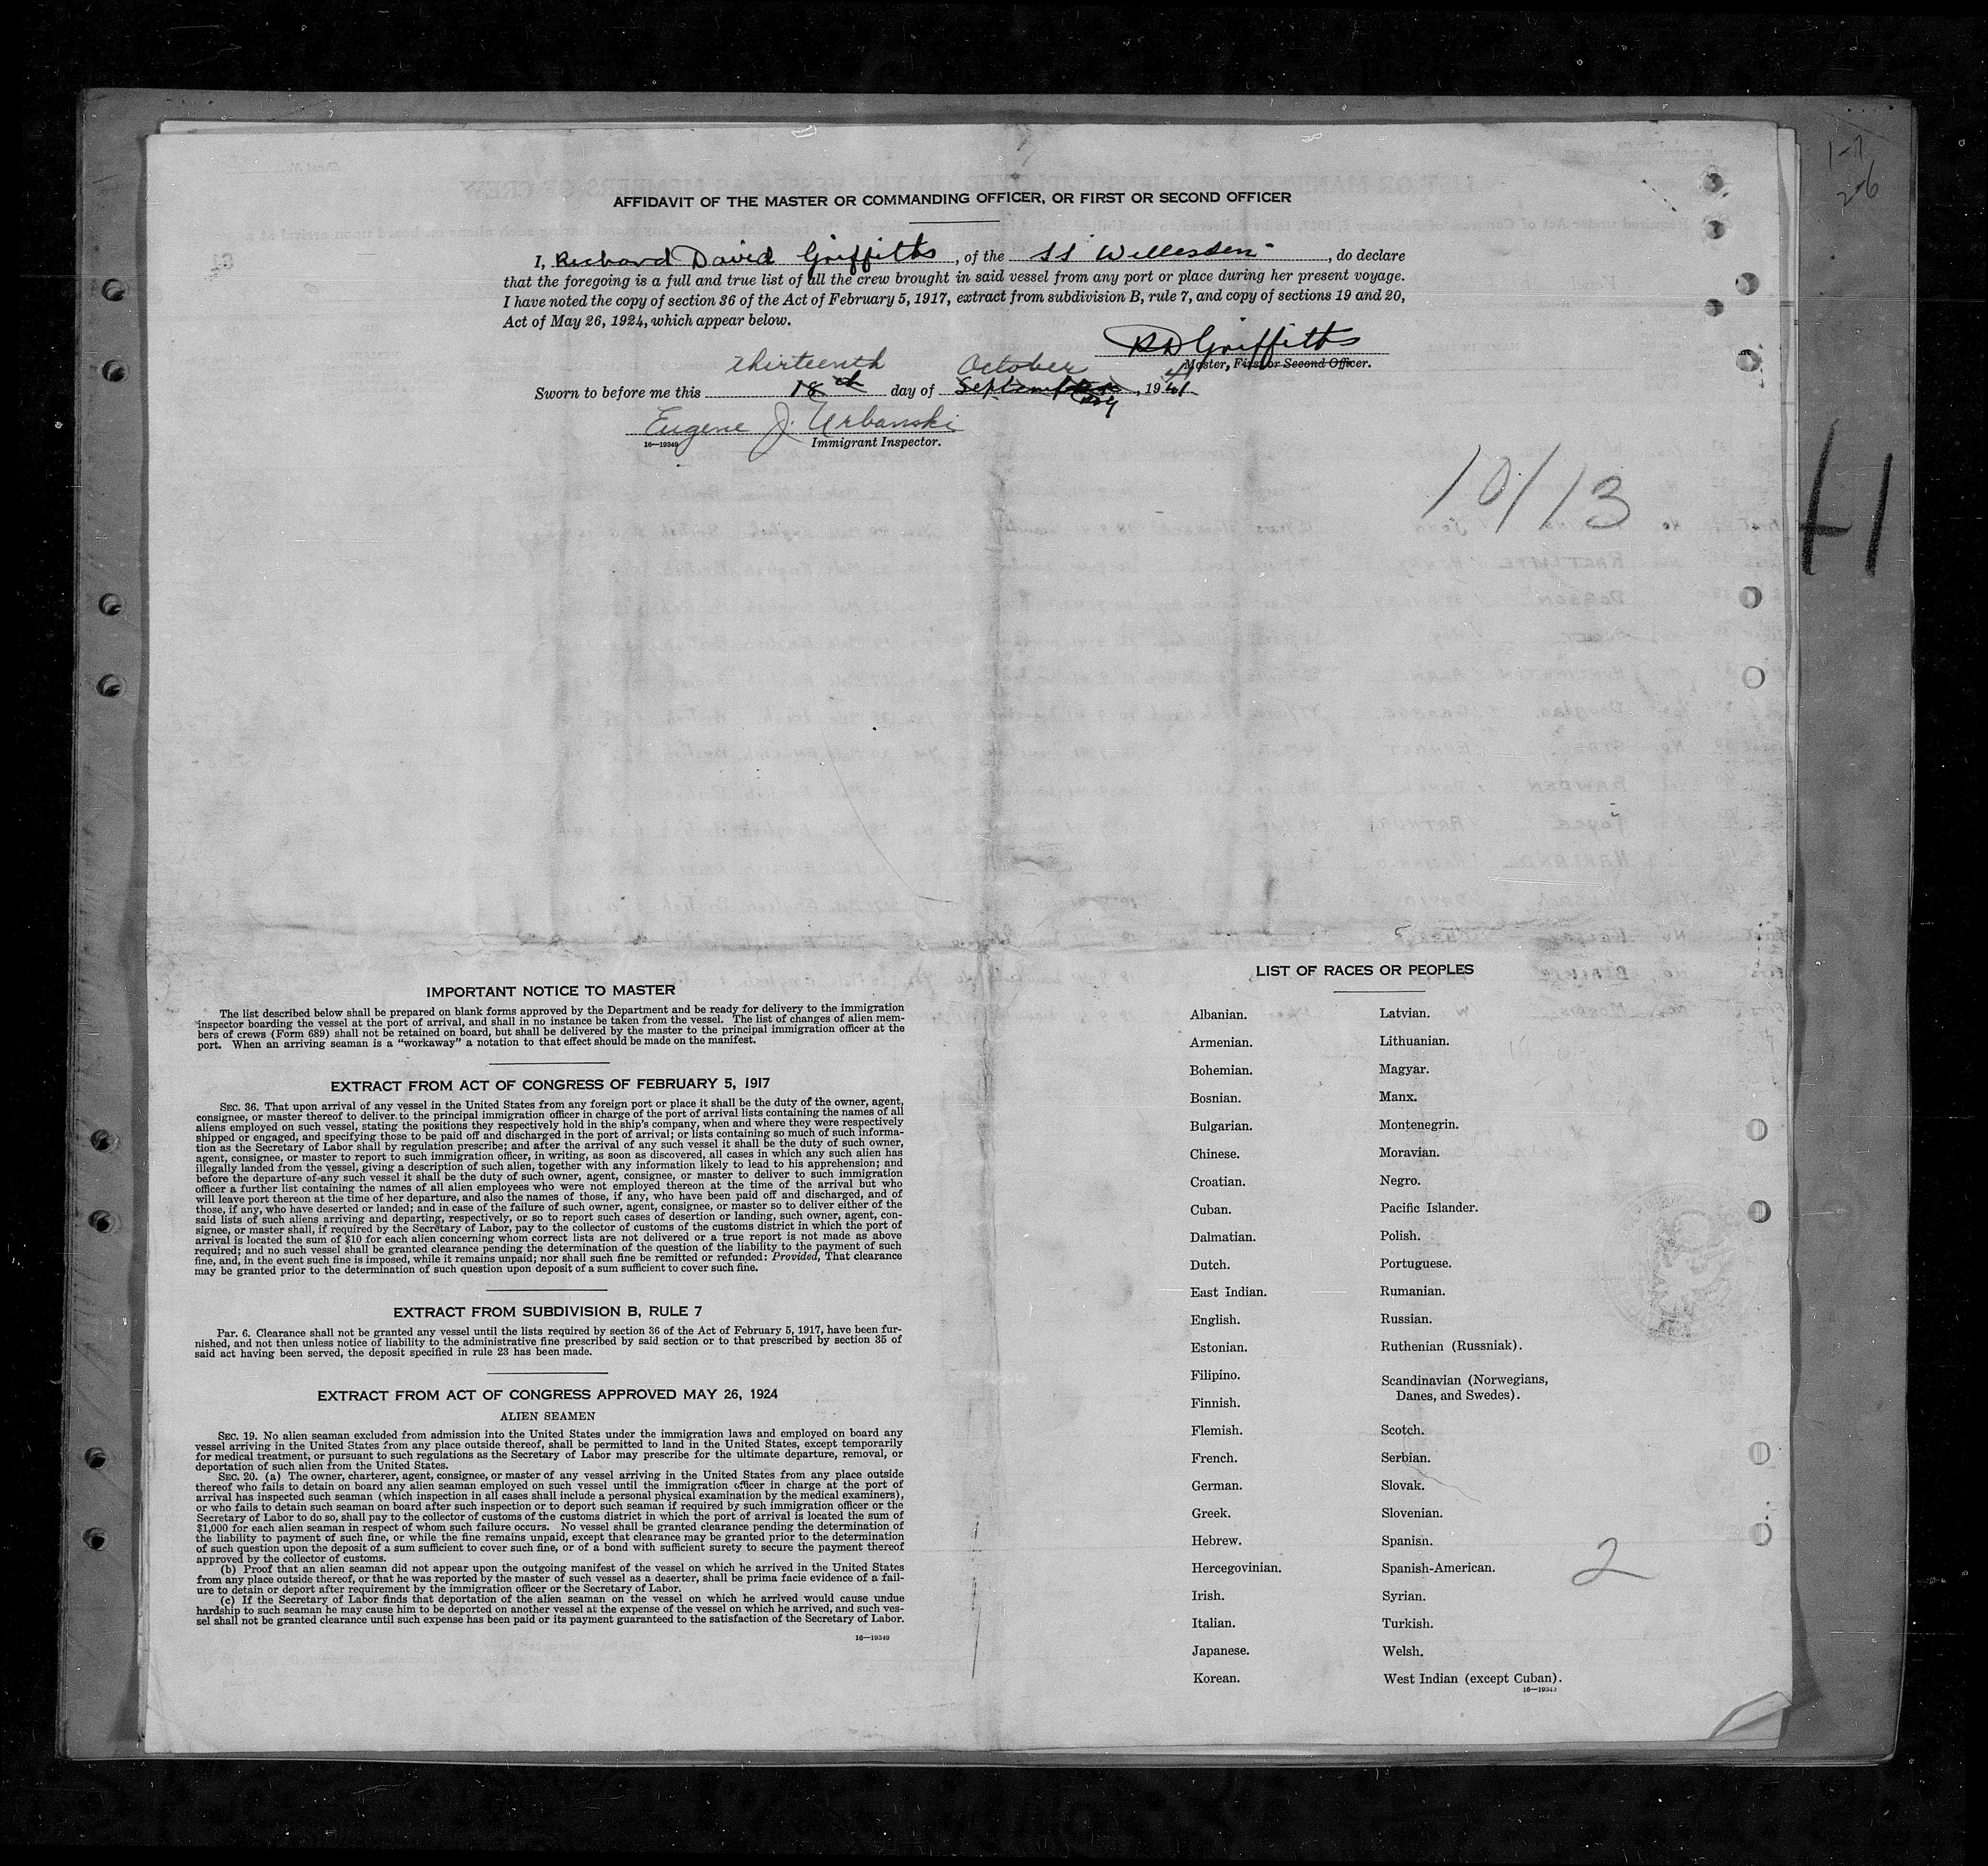 1-7
2-6
AFFIDAVIT OF THE MASTER OR COMMANDING OFFICER, OR FIRST OR SECOND OFFICER
I, Richard David Griffiths, of the SS Willesden, do declare
that the foregoing is a full and true list of all the crew brought in said vessel from any port or place during her present voyage.
I have noted the copy of section 36 of the Act of February 5, 1917, extract from subdivision B, rule 7, and copy of sections 19 and 20,
Act of May 26, 1924, which appear below.
RD Griffiths
Master, First or Second Officer.
thirteenth October 41
Sworn to before me this 18th day of September, 1941
Eugene J. Urbanski
16—19349 Immigrant Inspector.
10/13
41
IMPORTANT NOTICE TO MASTER
The list described below shall be prepared on blank forms approved by the Department and be ready for delivery to the immigration
inspector boarding the vessel at the port of arrival, and shall in no instance be taken from the vessel. The list of changes of alien mem-
bers of crews (Form 689) shall not be retained on board, but shall be delivered by the master to the principal immigration officer at the
port. When an arriving seaman is a “workaway” a notation to that effect should be made on the manifest.
EXTRACT FROM ACT OF CONGRESS OF FEBRUARY 5, 1917
SEC. 36. That upon arrival of any vessel in the United States from any foreign port or place it shall be the duty of the owner, agent,
consignee, or master thereof to deliver to the principal immigration officer in charge of the port of arrival lists containing the names of all
aliens employed on such vessel, stating the positions they respectively hold in the ship's company, when and where they were respectively
shipped or engaged, and specifying those to be paid off and discharged in the port of arrival; or lists containing so much of such informa-
tion as the Secretary of Labor shall by regulation prescribe; and after the arrival of any such vessel it shall be the duty of such owner,
agent, consignee, or master to report to such immigration officer, in writing, as soon as discovered, all cases in which any such alien has
illegally landed from the vessel, giving a description of such alien, together with any information likely to lead to his apprehension; and
before the departure of any such vessel it shall be the duty of such owner, agent, consignee, or master to deliver to such immigration
officer a further list containing the names of all alien employees who were not employed thereon at the time of the arrival but who
will leave port thereon at the time of her departure, and also the names of those, if any, who have been paid off and discharged, and of
those, if any, who have deserted or landed; and in case of the failure of such owner, agent, consignee, or master so to deliver either of the
said lists of such aliens arriving and departing, respectively, or so to report such cases of desertion or landing, such owner, agent, con-
signee, or master shall, if required by the Secretary of Labor, pay to the collector of customs of the customs district in which the port of
arrival is located the sum of $10 for each alien concerning whom correct lists are not delivered or a true report is not made as above
required; and no such vessel shall be granted clearance pending the determination of the question of the liability to the payment of such
fine, and, in the event such fine is imposed, while it remains unpaid; nor shall such fine be remitted or refunded: Provided, That clearance
may be granted prior to the determination of such question upon deposit of a sum sufficient to cover such fine.
EXTRACT FROM SUBDIVISION B, RULE 7
Par. 6. Clearance shall not be granted any vessel until the lists required by section 36 of the Act of February 5, 1917, have been fur-
nished, and not then unless notice of liability to the administrative fine prescribed by said section or to that prescribed by section 35 of
said act having been served, the deposit specified in rule 23 has been made.
EXTRACT FROM ACT OF CONGRESS APPROVED MAY 26, 1924
ALIEN SEAMEN
SEC. 19. No alien seaman excluded from admission into the United States under the immigration laws and employed on board any
vessel arriving in the United States from any place outside thereof, shall be permitted to land in the United States, except temporarily
for medical treatment, or pursuant to such regulations as the Secretary of Labor may prescribe for the ultimate departure, removal, or
deportation of such alien from the United States.
SEC. 20. (a) The owner, charterer, agent, consignee, or master of any vessel arriving in the United States from any place outside
thereof who fails to detain on board any alien seaman employed on such vessel until the immigration officer in charge at the port of
arrival has inspected such seaman (which inspection in all cases shall include a personal physical examination by the medical examiners),
or who fails to detain such seaman on board after such inspection or to deport such seaman if required by such immigration officer or the
Secretary of Labor to do so, shall pay to the collector of customs of the customs district in which the port of arrival is located the sum of
$1,000 for each alien seaman in respect of whom such failure occurs. No vessel shall be granted clearance pending the determination of
the liability to payment of such fine, or while the fine remains unpaid, except that clearance may be granted prior to the determination
of such question upon the deposit of a sum sufficient to cover such fine, or of a bond with sufficient surety to secure the payment thereof
approved by the collector of customs.
(b) Proof that an alien seaman did not appear upon the outgoing manifest of the vessel on which he arrived in the United States
from any place outside thereof, or that he was reported by the master of such vessel as a deserter, shall be prima facie evidence of a fail-
ure to detain or deport after requirement by the immigration officer or the Secretary of Labor.
(c) If the Secretary of Labor finds that deportation of the alien seaman on the vessel on which he arrived would cause undue
hardship to such seaman he may cause him to be deported on another vessel at the expense of the vessel on which he arrived, and such ves-
sel shall not be granted clearance until such expense has been paid or its payment guaranteed to the satisfaction of the Secretary of Labor.
16—19349
LIST OF RACES OR PEOPLES
Albanian.
Armenian.
Bohemian.
Bosnian.
Bulgarian.
Chinese.
Croatian.
Cuban.
Dalmatian.
Dutch.
East Indian.
English.
Estonian.
Filipino.
Finnish.
Flemish.
French.
German.
Greek.
Hebrew.
Hercegovinian.
Irish.
Italian.
Japanese.
Korean.
Latvian.
Lithuanian.
Magyar.
Manx.
Montenegrin.
Moravian.
Negro.
Pacific Islander.
Polish.
Portuguese.
Rumanian.
Russian.
Ruthenian (Russniak).
Scandinavian (Norwegians,
Danes, and Swedes).
Scotch.
Serbian.
Slovak.
Slovenian.
Spanish.
Spanish-American.
Syrian.
Turkish.
Welsh.
West Indian (except Cuban).
16—19349
2